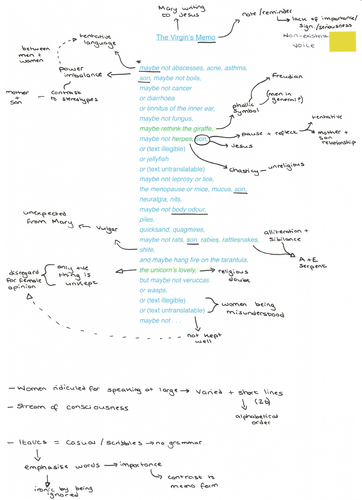 Mary writing
to
Jesus
The Virgin's Memo
note/reminder
lack of importance/
sign./seriousness
Non-existent
voice
between
men +
women
tentative
language
power
imbalance
mother
+
son
contrast
to
stereotypes
maybe not abscesses, acne, asthma,
son, maybe not boils,
maybe not cancer
or diarrhoea
or tinnitus of the inner ear,
maybe not fungus,
maybe rethink the giraffe,
maybe not herpes, son,
or (text illegible)
or jellyfish
or (text untranslatable)
maybe not leprosy or lice,
the menopause or mice, mucus, son,
neuralgia, nits,
maybe not body odour,
piles,
quicksand, quagmires,
maybe not rats, son, rabies, rattlesnakes,
shite,
and maybe hang fire on the tarantula,
the unicorn's lovely,
but maybe not veruccas
or wasps,
or (text illegible)
or (text untranslatable)
maybe not . . .
Freudian
phallic
symbol
(men in
general?)
pause + reflect
tentative
mother +
son
relationship
Jesus
chastity - unreligious
unexpected
from Mary
vulgar
alliteration +
sibilance
A + E
Serpent
disregard
for female
opinion
only +ve
thing is
unkept
religious
doubts
women being
misunderstood
not kept
well
- Women ridiculed for speaking at large → varied + short lines
(26)
alphabetical
order
- Stream of consciousness
- Italics = casual / scribbles → no grammar
emphasise words → importance
contrast to
memo form
ironic by being
ignored